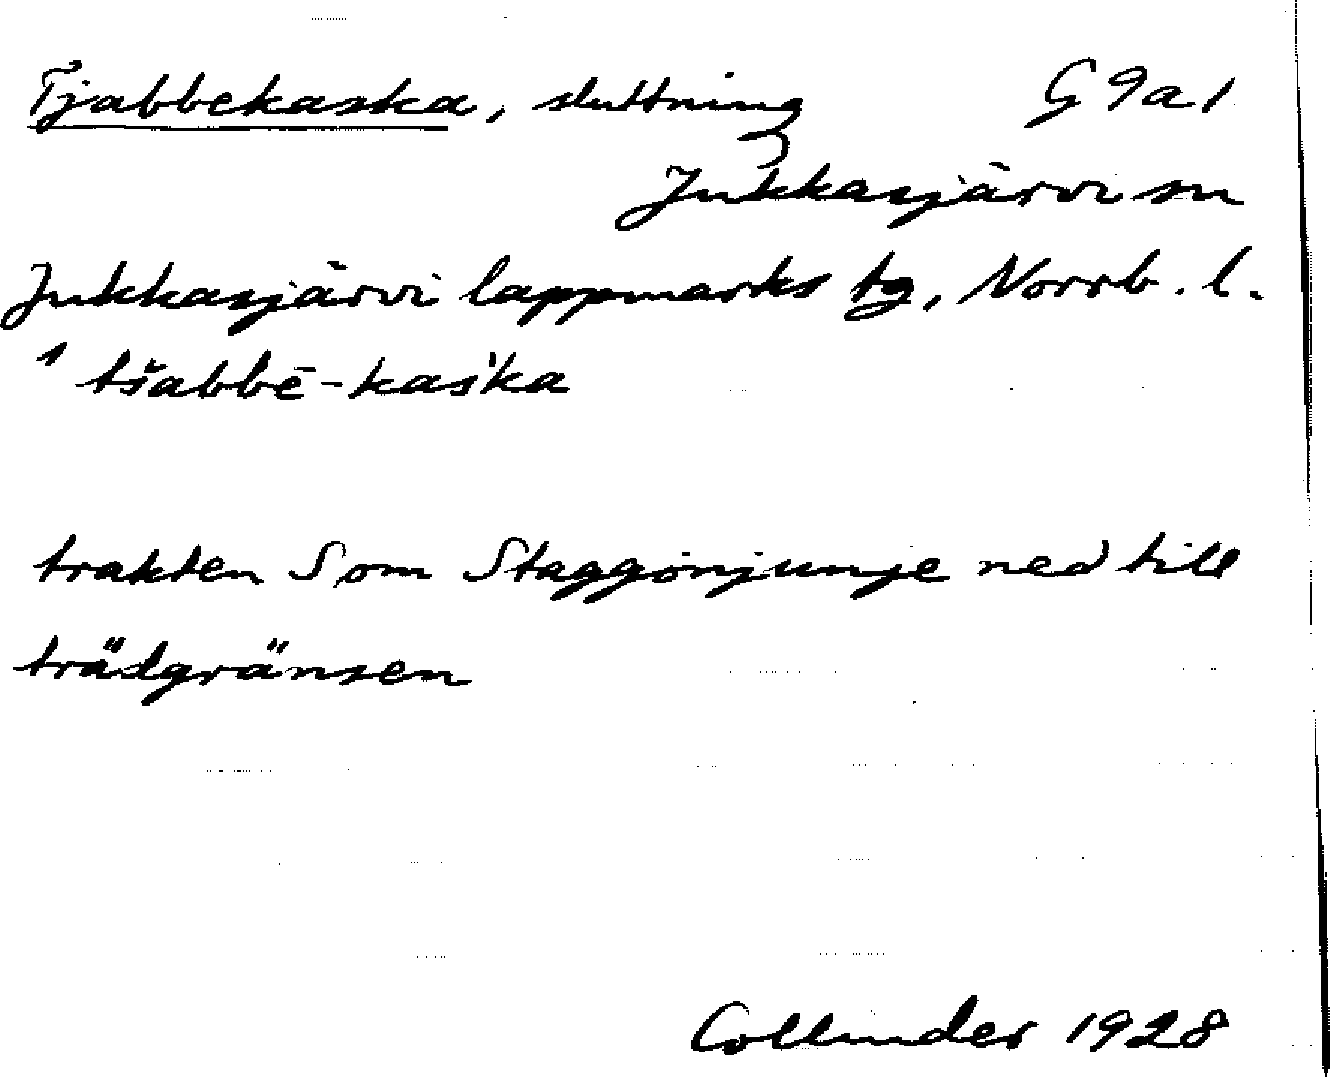 Tjabbekaska, sluttning G 9a1
Jukkasjärvi sn
Jukkasjärvi lappmarks tg, Norrb. l.
ˈtšabbē-kasˈka
trakten S om Staggonjunje ned till
trädgränsen
Collinder 1928